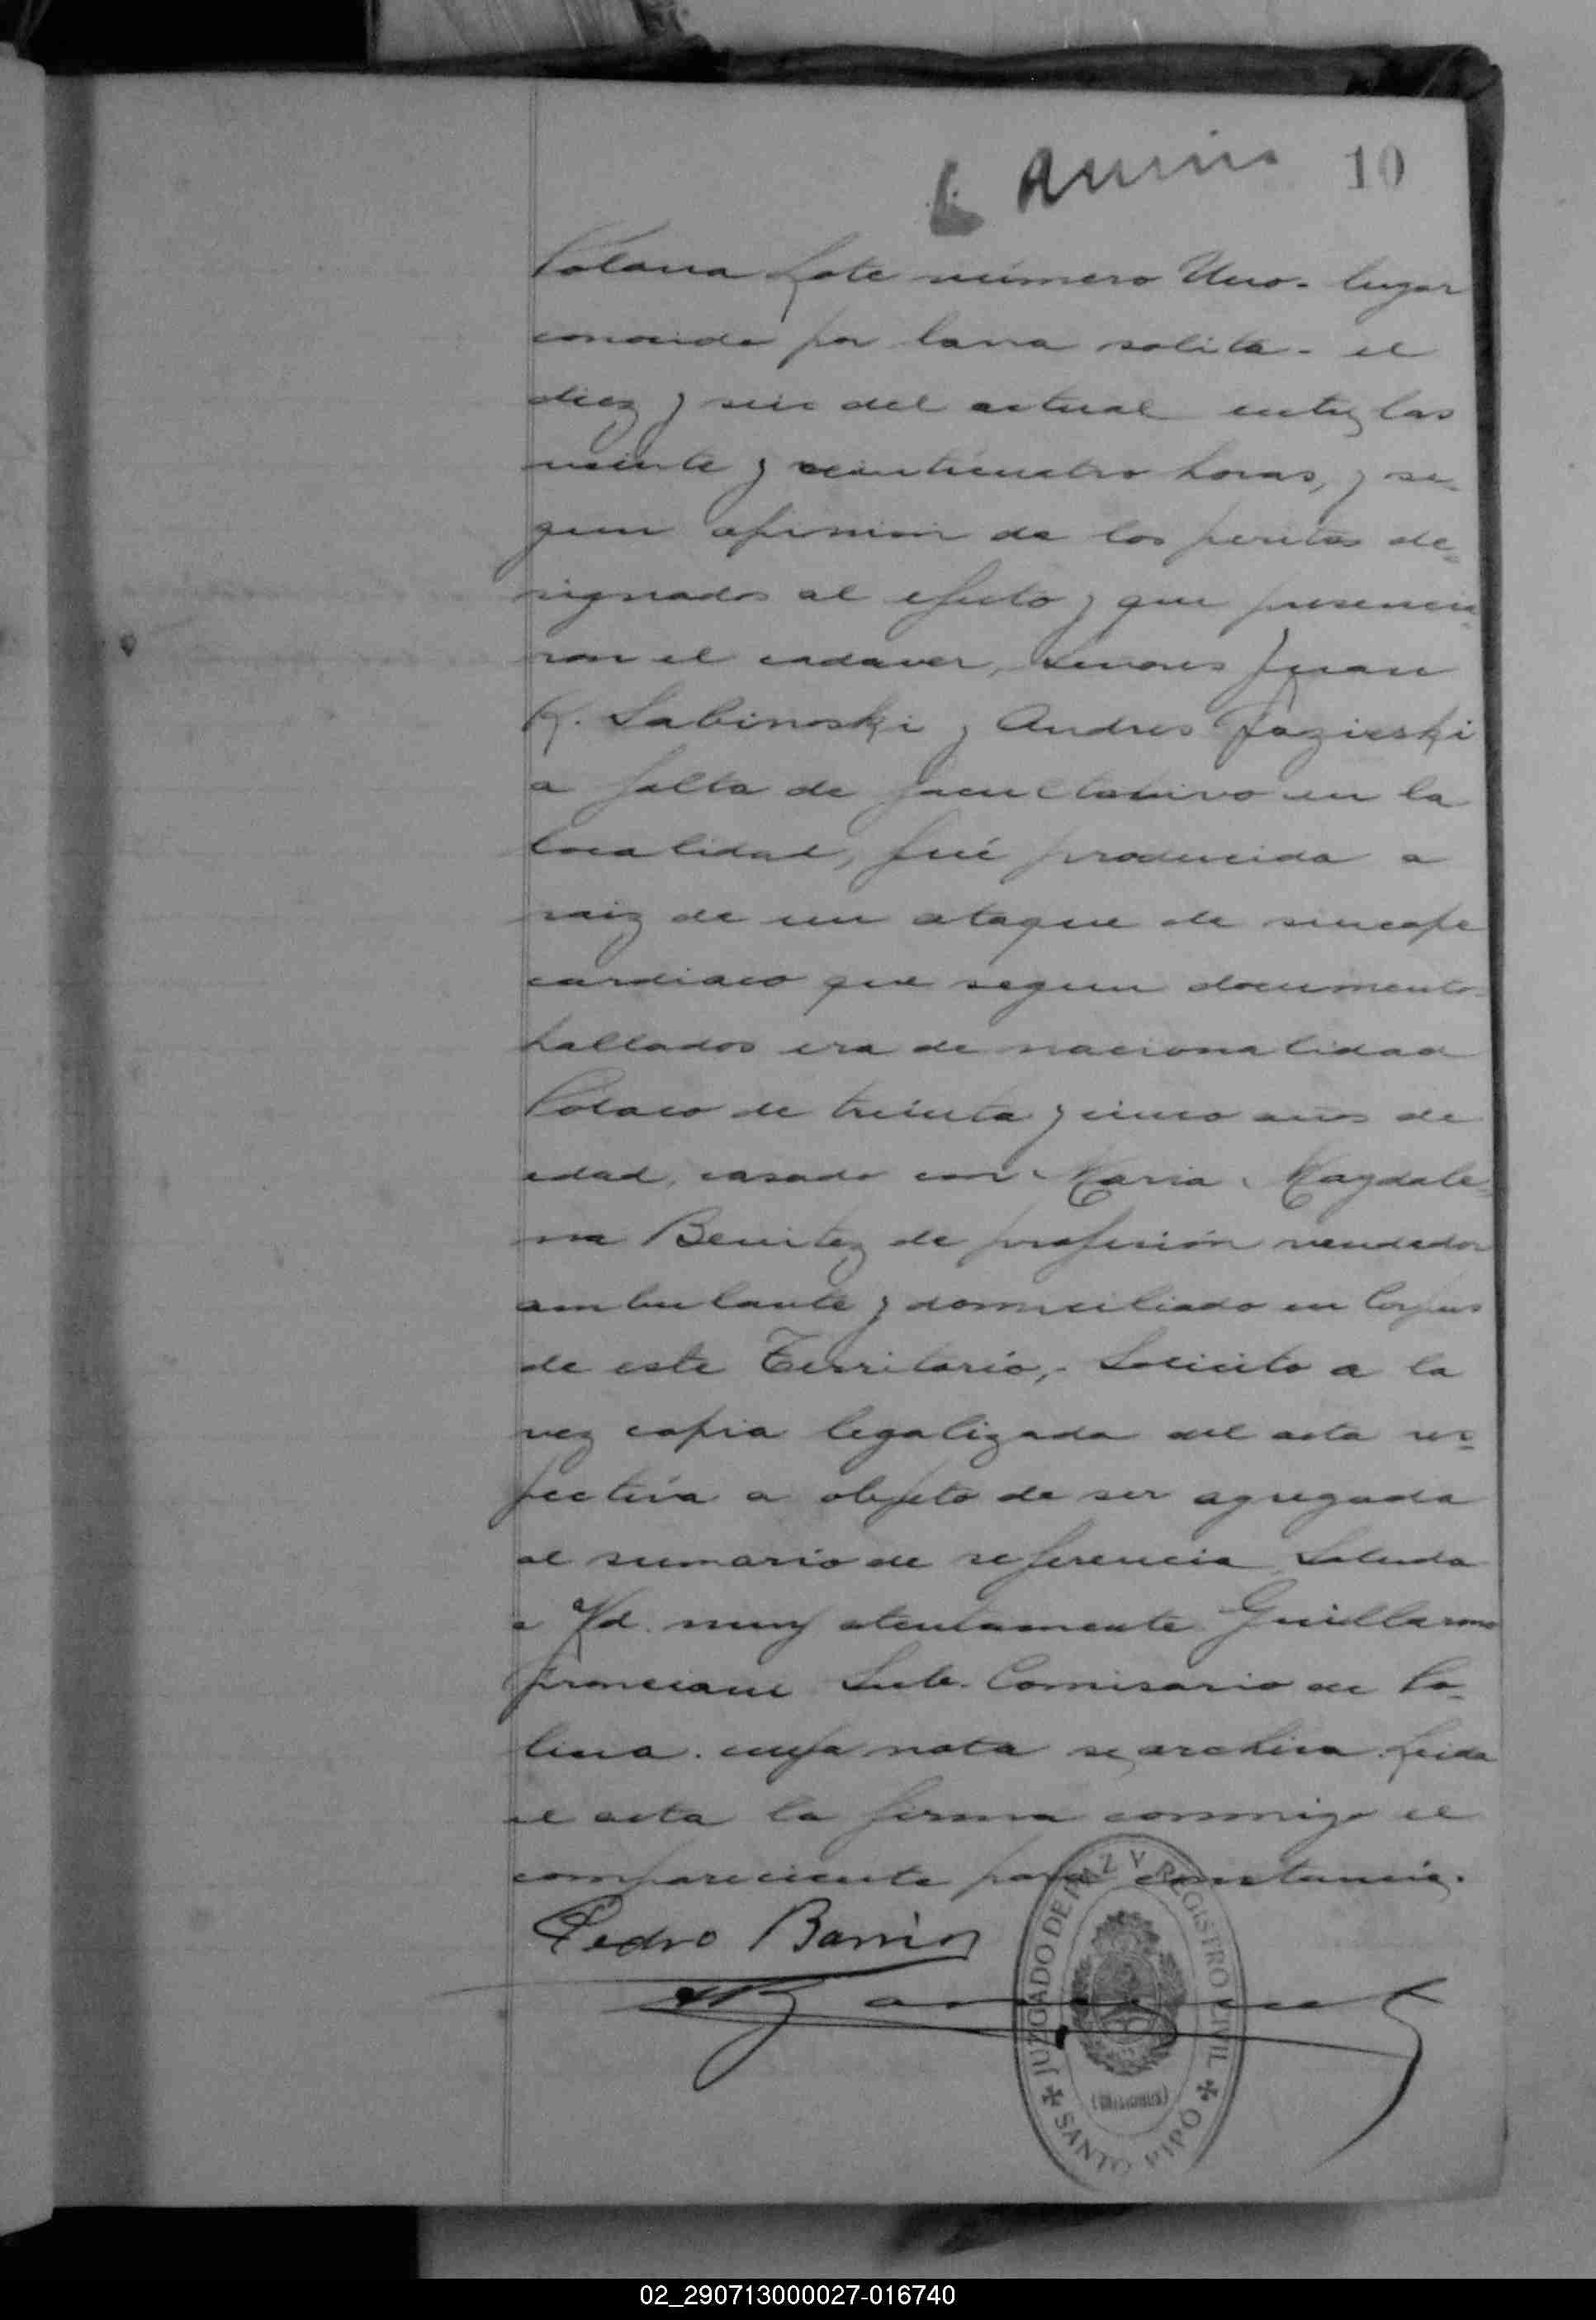 10
Polana Lote número Uno. lugar
conocido por casa solita. el
diez y seis del actual entre las
veinte y veinticuatro horas, y se-
gun opinion de los peritos de-
signados al efecto y que presencia-
ron el cadaver, Señores Juan
K. Sabinoski y Andres Jazieski
a falta de facultativo en la
localidad, fué producida a
raiz de un ataque de sincope
cardiaco que segun documentos
hallados era de nacionalidad
Polaco de treinta y cinco años de
edad, casado con Maria Magdale-
na Benitez de profesión vendedor
ambulante y domiciliado en Corpus
de este Territorio,- Solicito a la
vez copia legalizada del acta res-
pectiva a objeto de ser agregada
al sumario de referencia Saluda
a Vd. muy atentamente Guillermo
Sub. Comisario de Po-
licia. cuya nota se archiva. Leida
el acta la firma conmigo el
compareciente para constancia.
Pedro Barrios
JUZGADO DE PAZ Y REGISTRO CIVIL
(Misiones)
SANTO PIPÓ
02_290713000027-016740